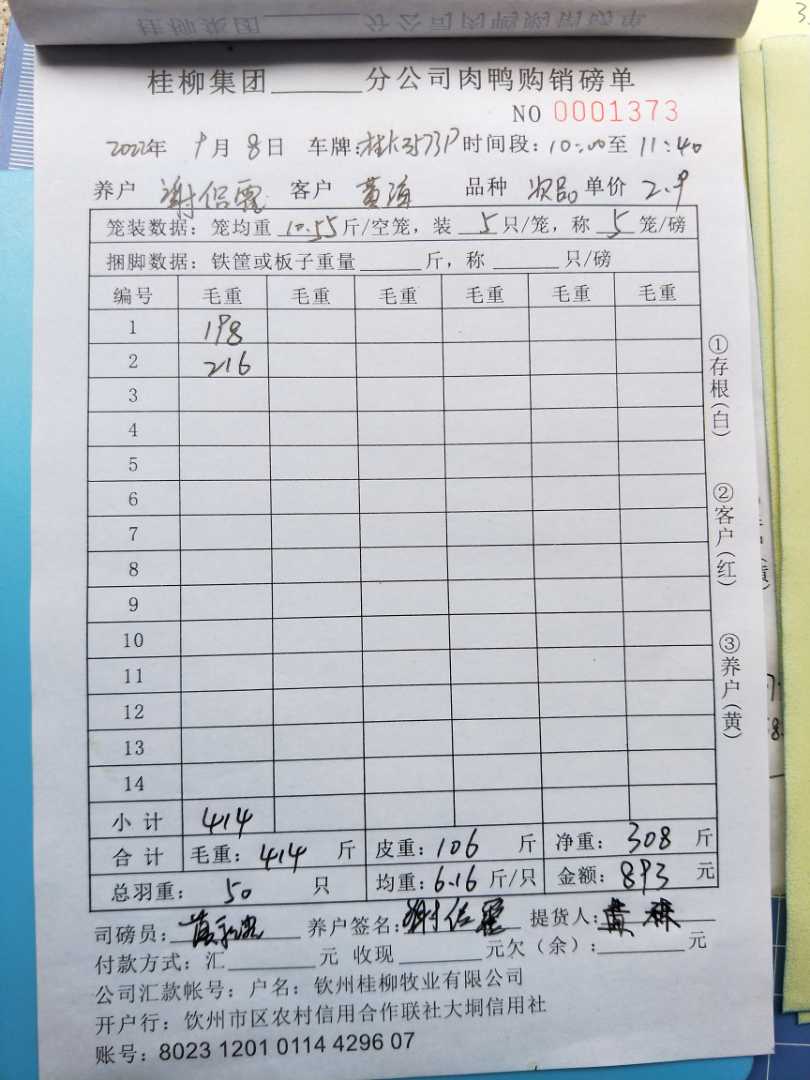 桂柳集团______分公司肉鸭购销磅单
NO 0001373
2022年 9月 8日 车牌: 时间段:10:00至 11:40
养户 谢侣霞 客户 黄海 品种 次品 单价 2.9
笼装数据:笼均重 10.55斤/空笼,装 5只/笼,称 5 笼/磅
捆脚数据:铁筐或板子重量_____斤,称_____只/磅
编号 毛重 毛重 毛重 毛重 毛重 毛重
1 198
2 216
3
4
5
6
7
8
9
10
11
12
13
14
小 计 414
合 计 毛重: 414 斤 皮重: 106 斤 净重: 308 斤
总羽重: 50 只 均重: 6.16 斤/只 金额: 893 元
司磅员: 养户签名: 提货人:
付款方式:汇______元 收现______元欠(余):______元
公司汇款帐号:户名:钦州桂柳牧业有限公司
开户行:钦州市区农村信用合作联社大垌信用社
账号:8023 1201 0114 4296 07
①存根(白)
②客户(红)
③养户(黄)